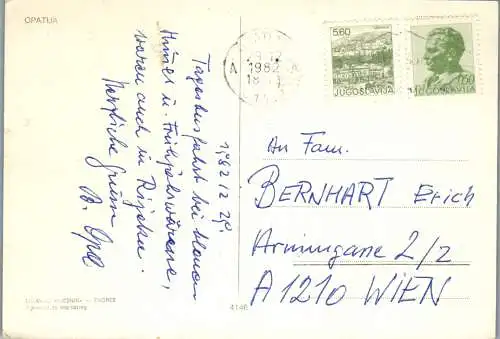 OPATIJA
1982 12 29.
Tagesausfahrt bei blauem
Himmel u. Frühjahrswärme,
waren auch in Rijeka.
Herzliche Grüsse
1982
18
5.60
JUGOSLAVIJA
JUGOSLAVIJA
An Fam.
BERNHART Erich
Arminngasse 2/2
A 1210 WIEN
ZAGREB
4146